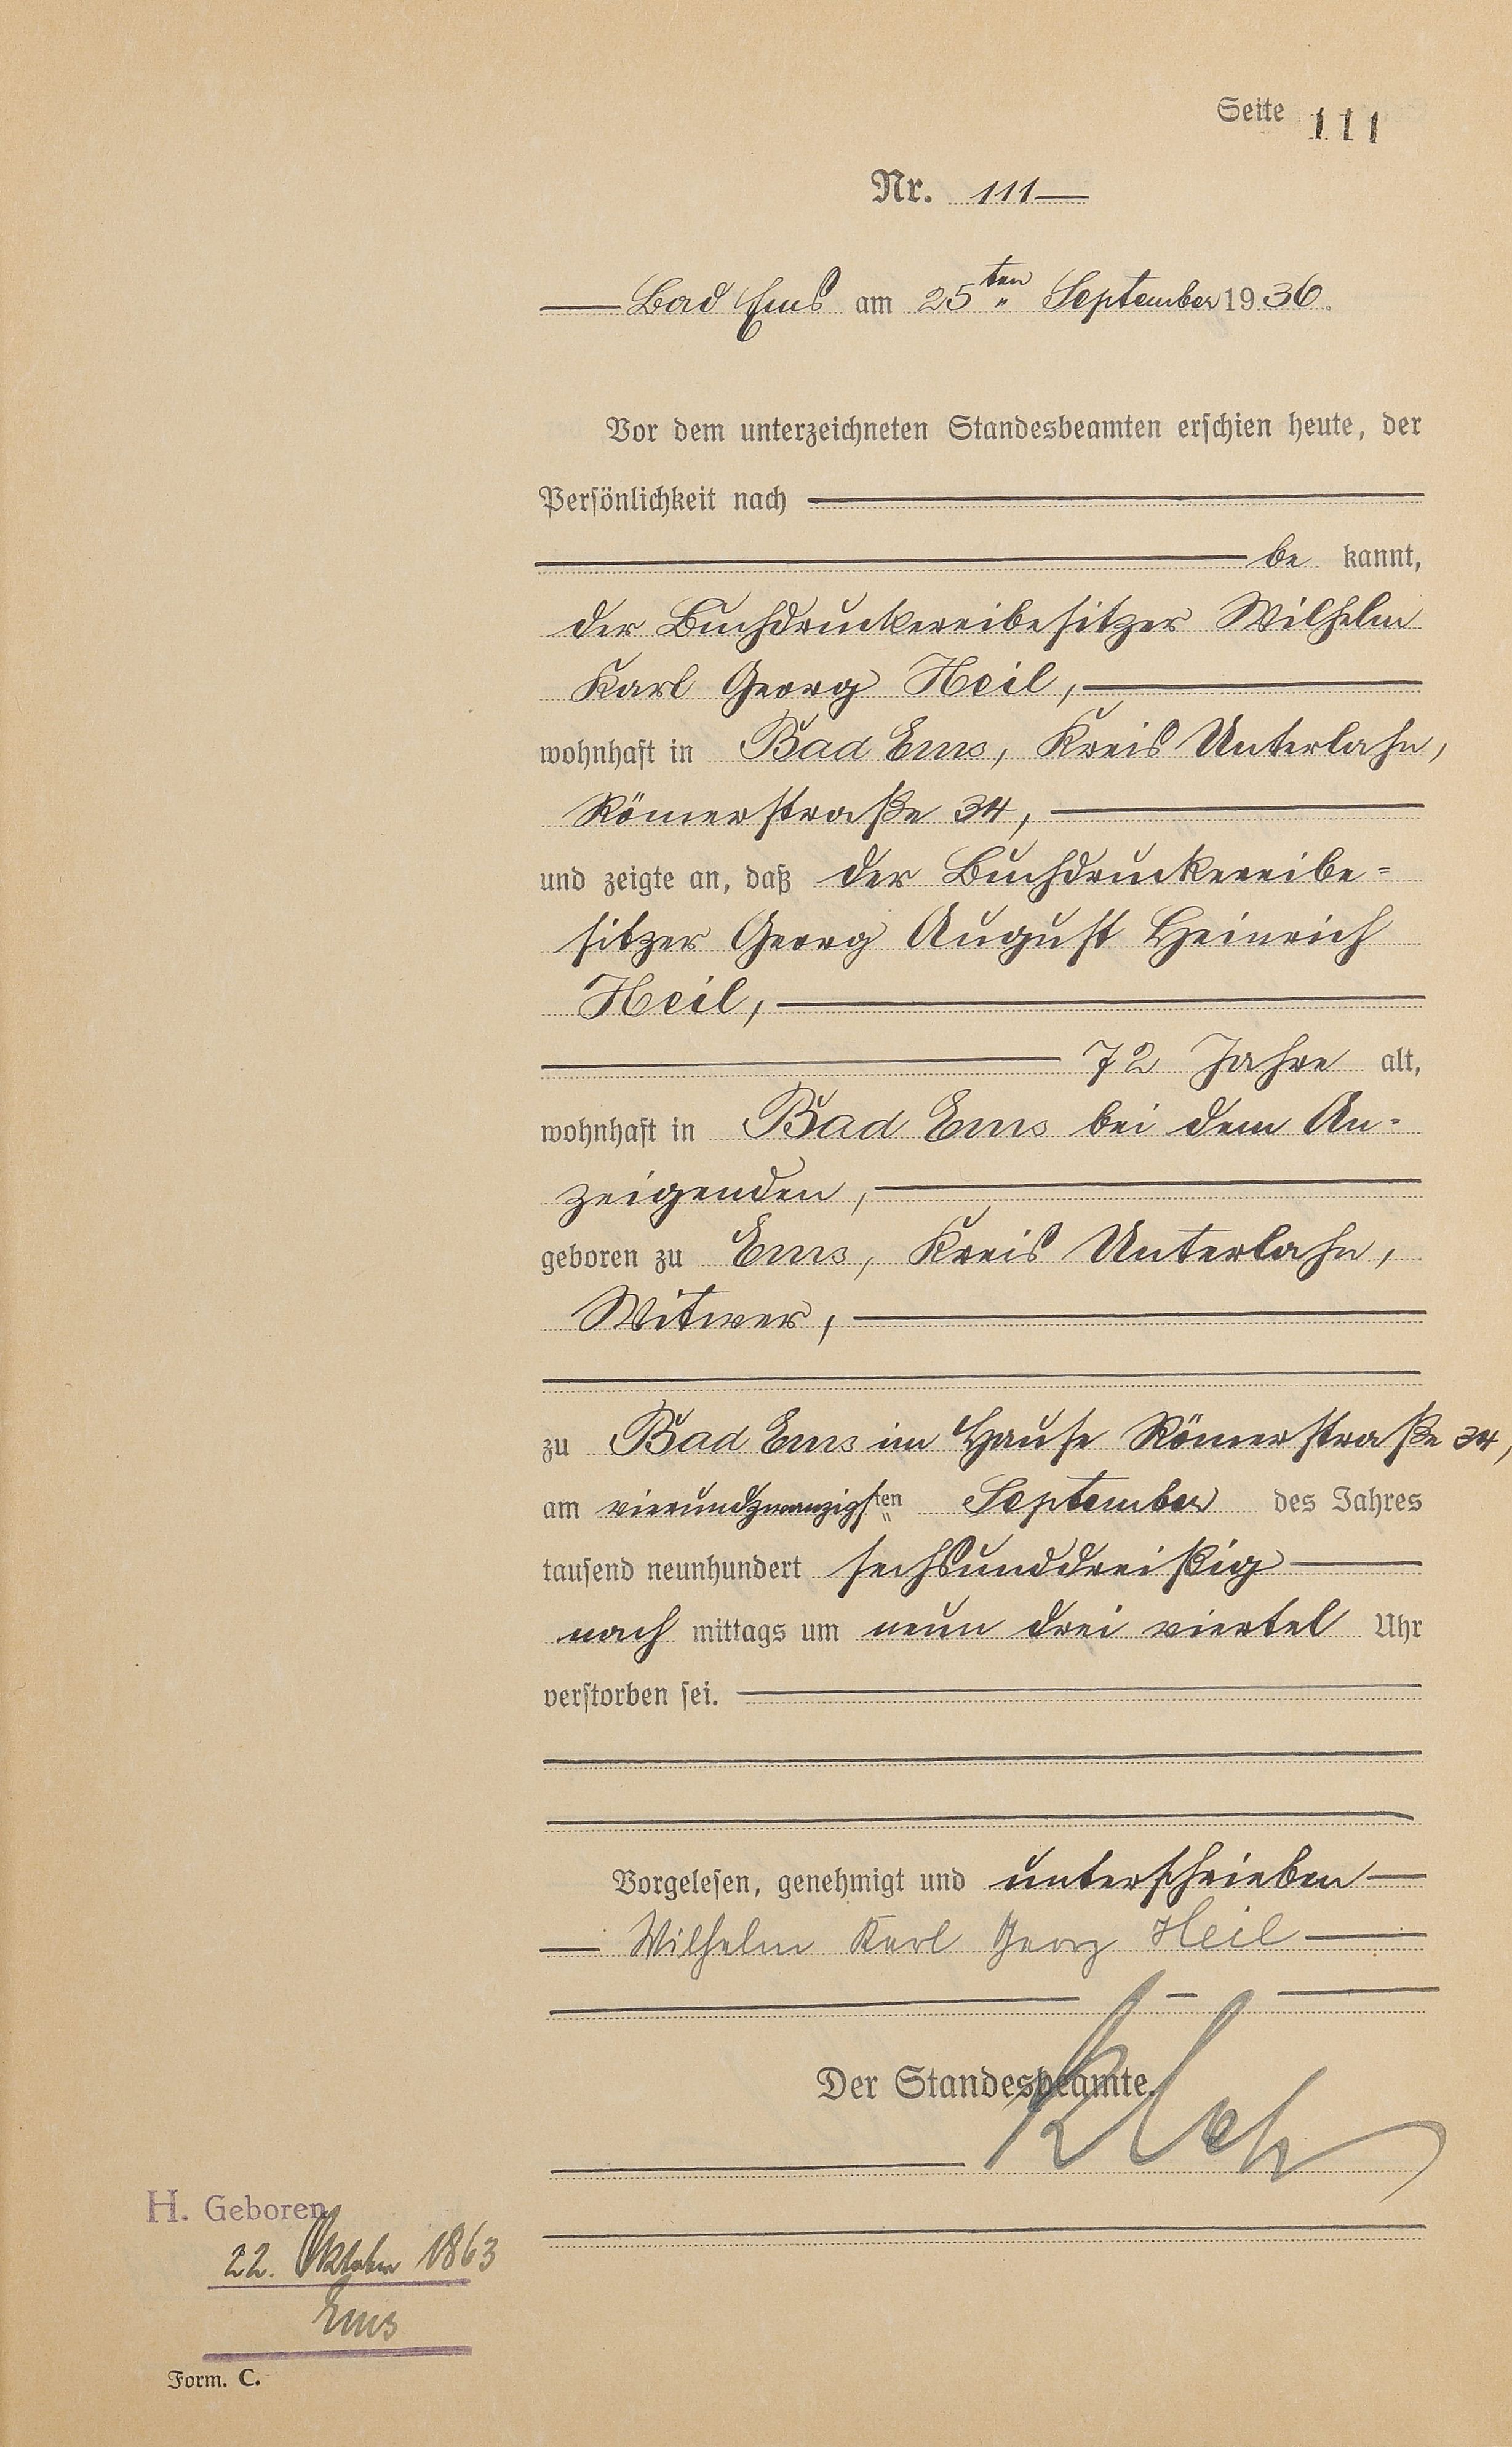 Seite 111
Nr. 111
Bad Ems am 25ten September 1936.
Vor dem unterzeichneten Standesbeamten erschien heute, der
Persönlichkeit nach
be kannt,
der Buchdruckereibesitzer Wilhelm
Karl Georg Heil,
wohnhaft in Bad Ems, Kreis Unterlahn,
Römerstraße 34,
und zeigte an, daß der Buchdruckereibe=
sitzer Georg August Heinrich
Heil,
72 Jahre alt,
wohnhaft in Bad Ems bei dem An-
zeigenden,
geboren zu Ems, Kreis Unterlahn,
Witwer,
zu Bad Ems im Hause Römerstraße 34,
am vierundzwanzigsten September des Jahres
tausend neunhundert sechsunddreißig
nach mittags um neun drei viertel Uhr
verstorben sei.
Vorgelesen, genehmigt und unterschrieben
Wilhelm Karl Georg Heil
Der Standesbeamte.
H. Geboren
22. Oktober 1863
Ems
Form. C.